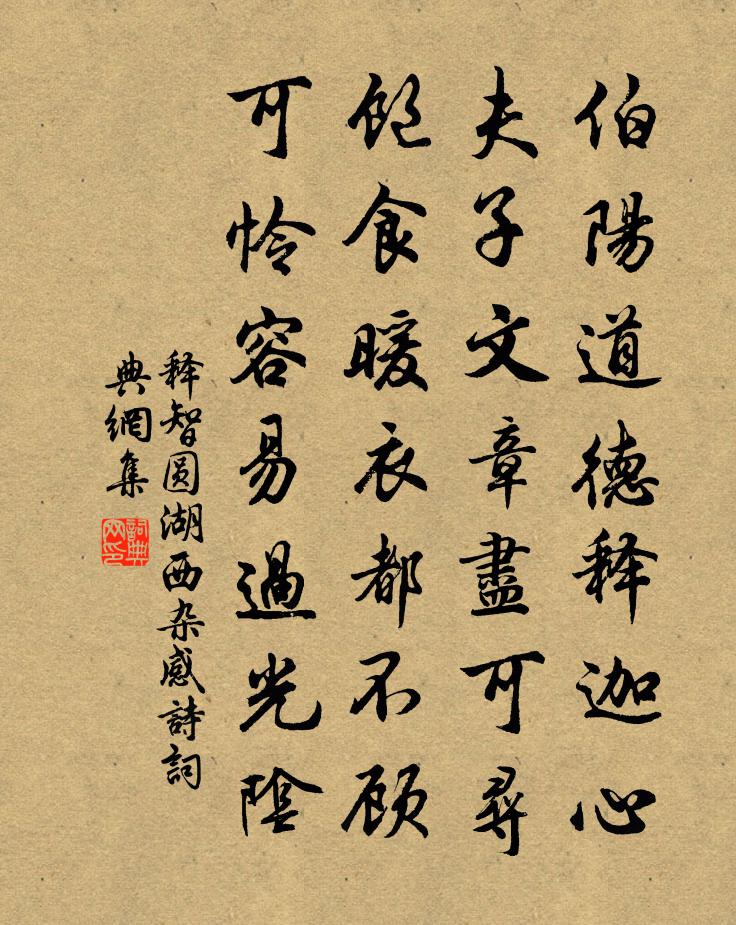 伯陽道德释迦心
夫子文章盡可尋
飽食暖衣都不顾
可怜容易過光陰
释智圆湖西杂感詩詞
典網集
詞典网印